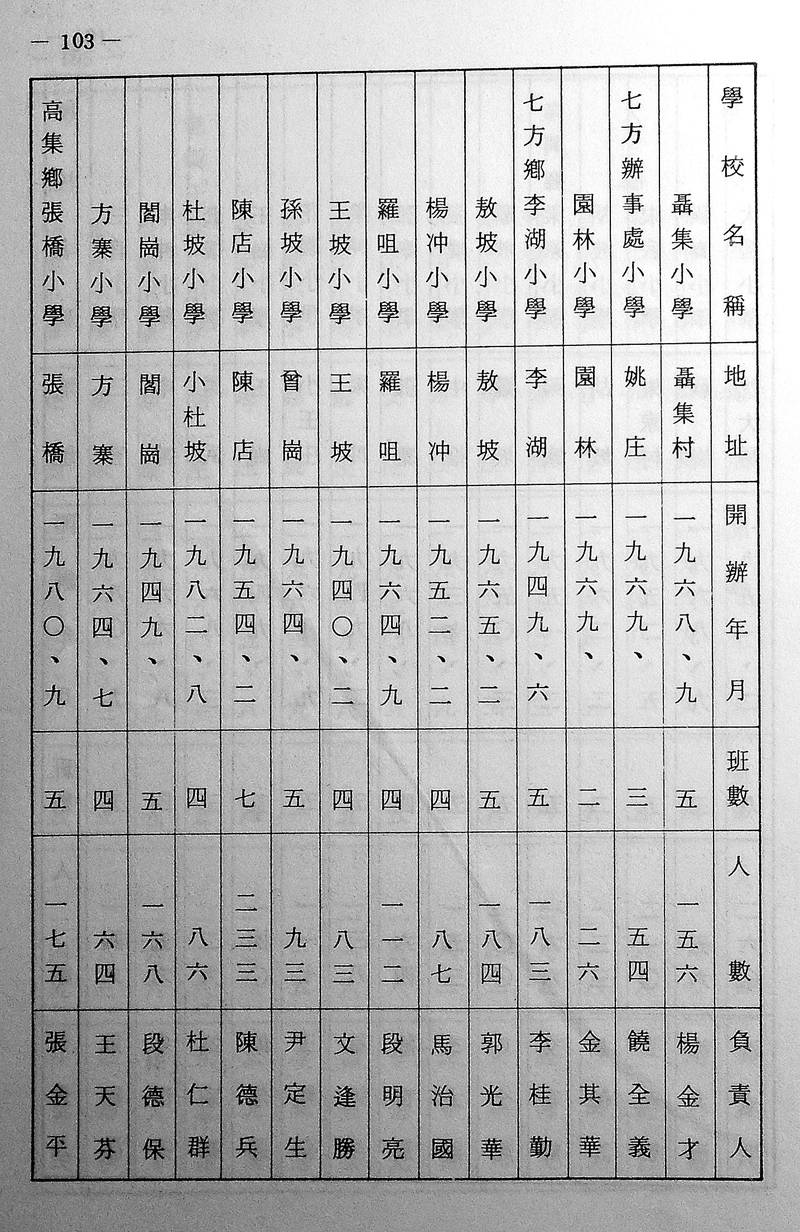 — 103 —
學校名稱 地址 開辦年月 班數 人數 負責人
聶集小學 聶集村 一九六八、九 五 一五六 楊金才
七方辦事處小學 姚庄 一九六九、 三 五四 饒全義
園林小學 園林 一九六九、 二 二六 金其華
七方鄉李湖小學 李湖 一九四九、六 五 一八三 李桂勤
敖坡小學 敖坡 一九六五、二 五 一八四 郭光華
楊冲小學 楊冲 一九五二、二 四 八七 馬治國
羅咀小學 羅咀 一九六四、九 四 一一二 段明亮
王坡小學 王坡 一九四〇、二 四 八三 文逢勝
孫坡小學 曾崗 一九六四、 五 九三 尹定生
陳店小學 陳店 一九五四、二 七 二三三 陳德兵
杜坡小學 小杜坡 一九八二、八 四 八六 杜仁群
閻崗小學 閻崗 一九四九、 五 一六八 段德保
方寨小學 方寨 一九六四、七 四 六四 王天芬
高集鄉張橋小學 張橋 一九八〇、九 五 一七五 張金平